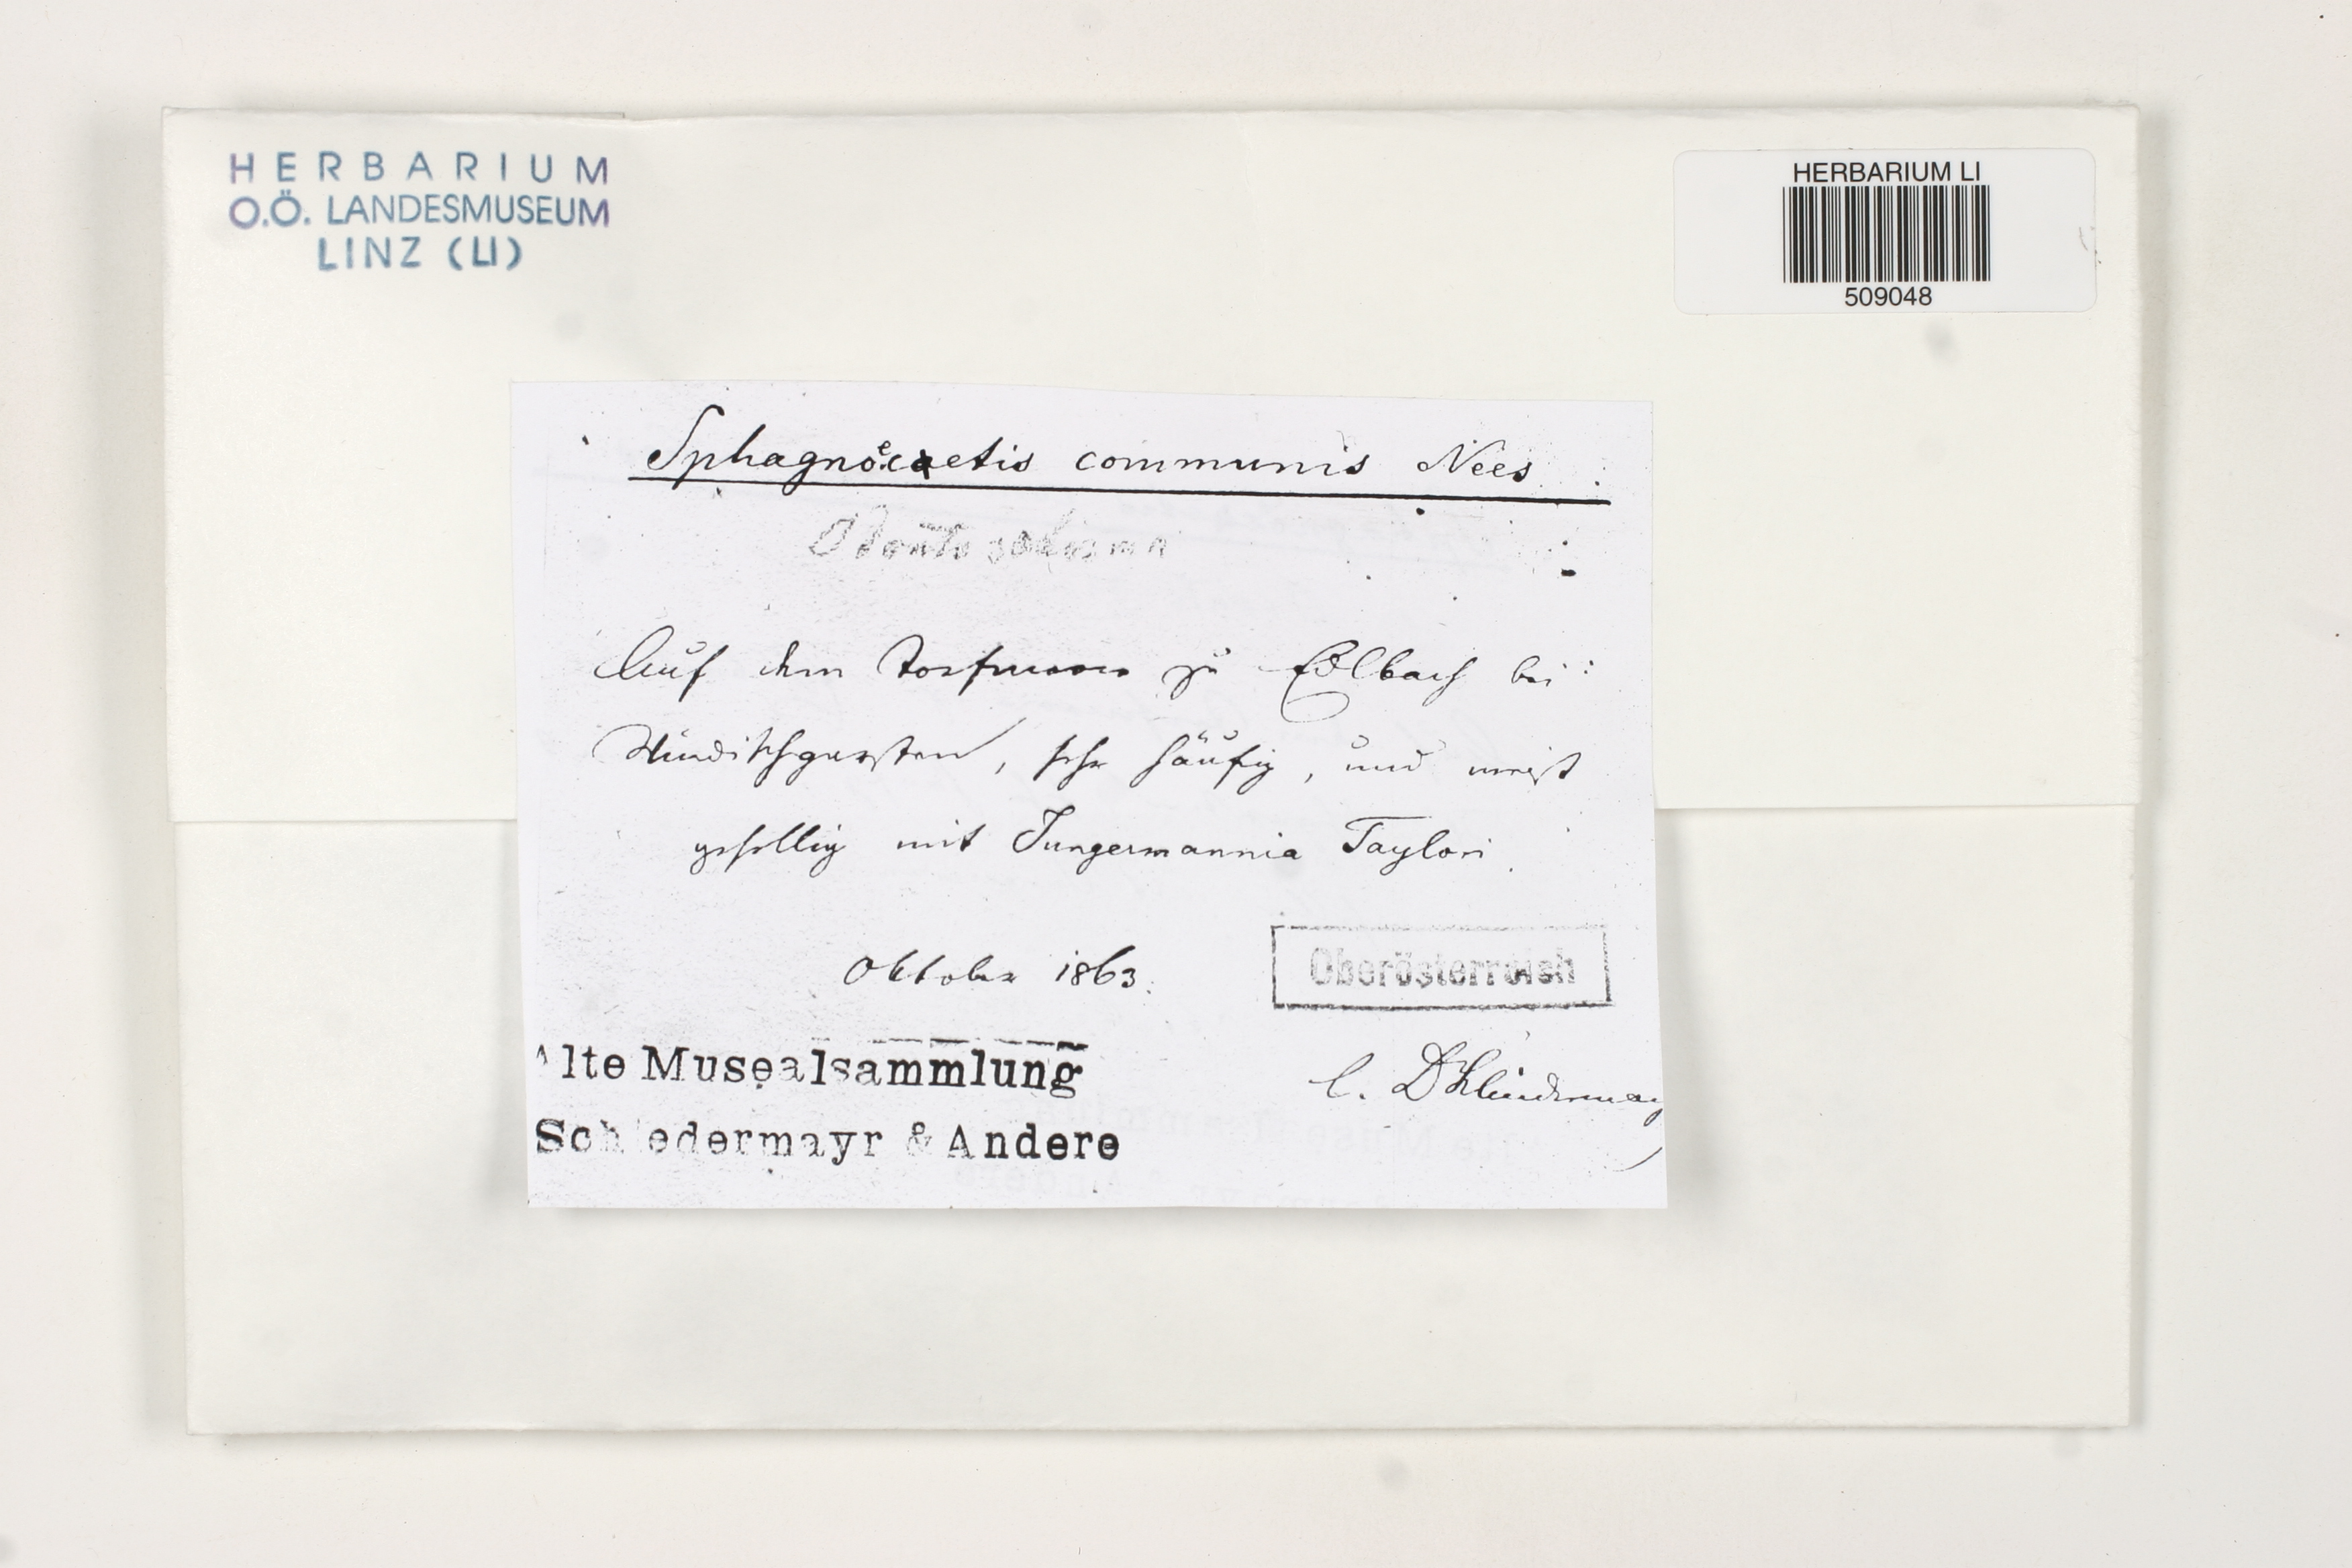 HERBARIUM
O.Ö. LANDESMUSEUM
LINZ (LI)
HERBARIUM LI
509048
Sphagnoecetis communis Nees.
Odontoschisma
Auf dem Torfmoor zu Edlbach bei
Windischgarsten, sehr häufig, und meist
gesellig mit Jungermannia Taylori.
Oktober 1863.
Oberösterreich
Alte Musealsammlung
Schiedermayr & Andere